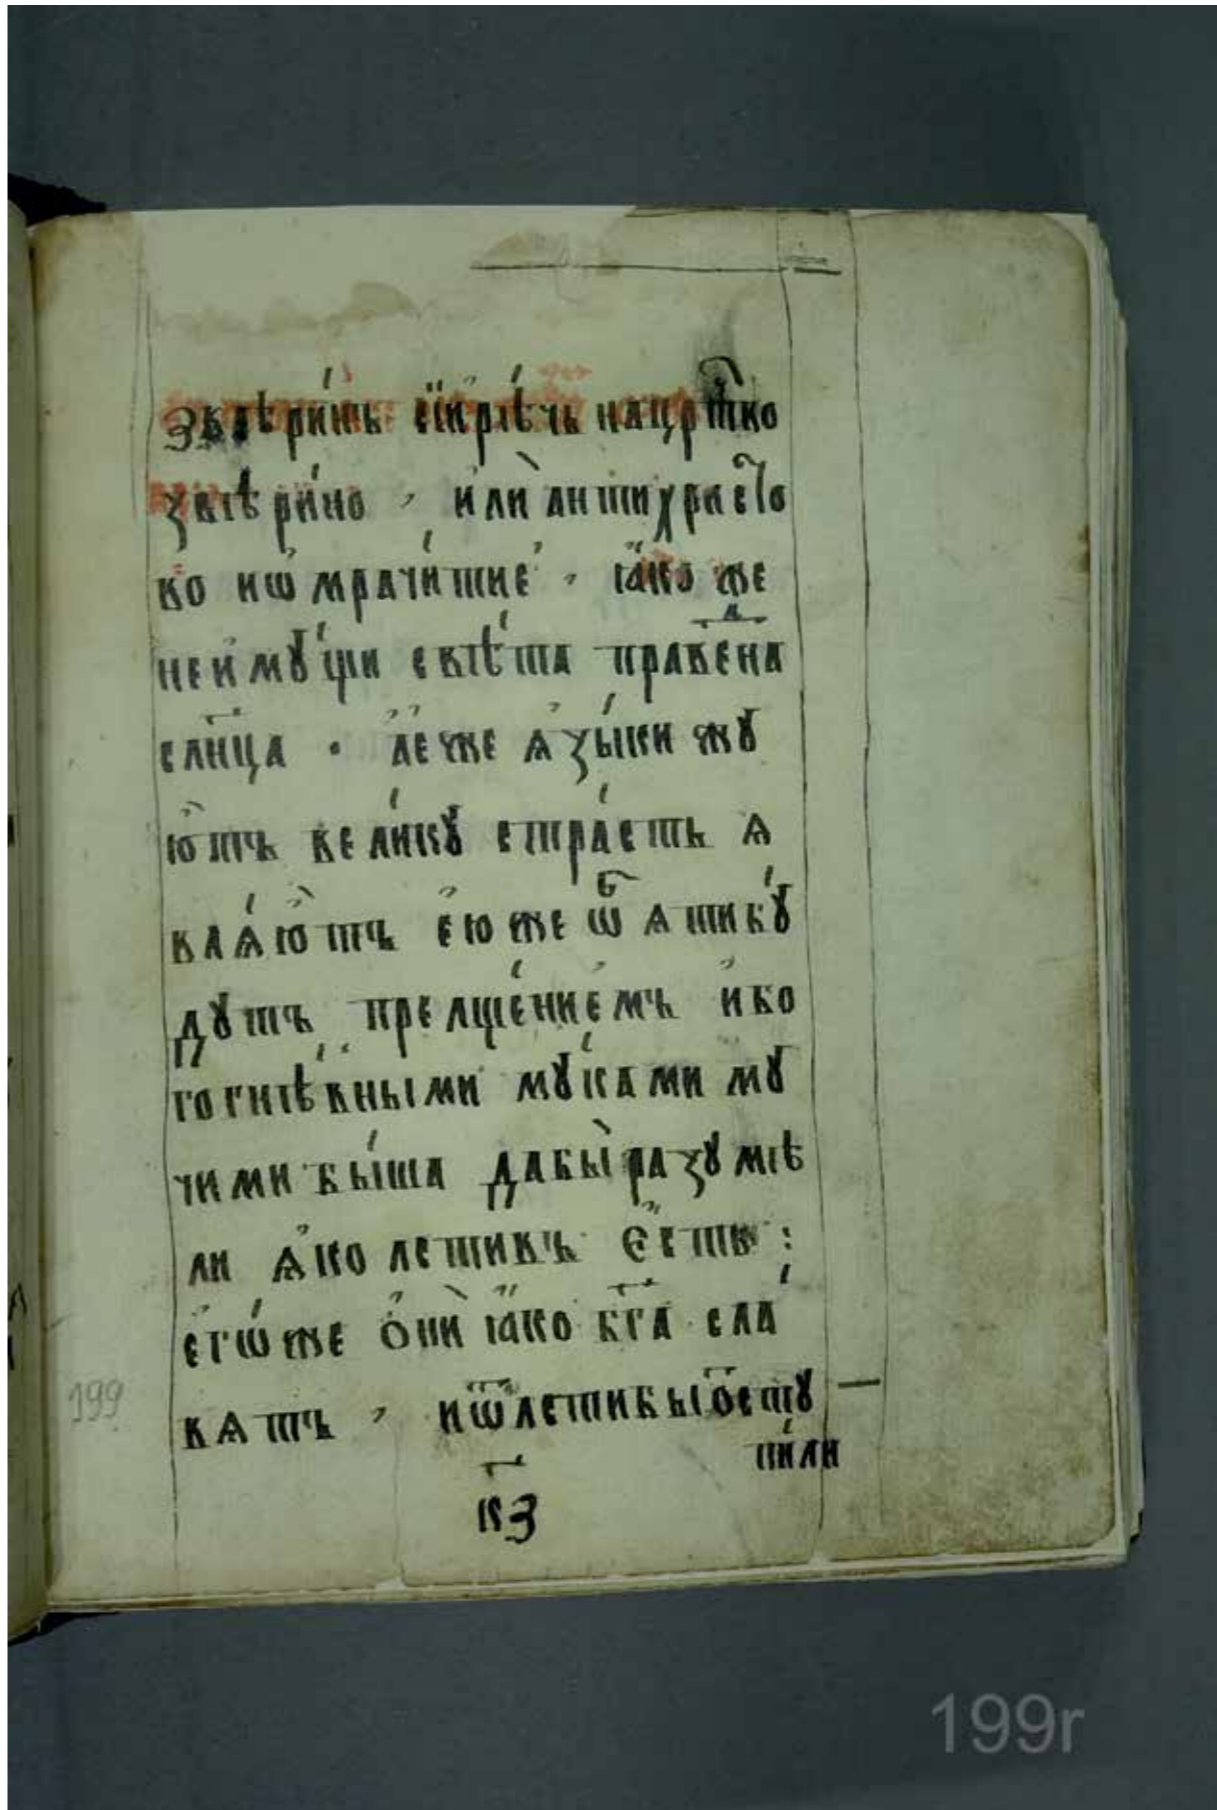 звѣри́нъ си́рѣчь нацр҃тво
звѣри́но , и҆лѝ антихристо
во иѡ҆мрачи́тие . ꙗ҆́коже
неи҆мꙋ́щи свѣ́та правена
сл҃нца . а҆е҆же ѧ҆зы́ки жꙋ
ю҆̀тъ вели́кꙋ стра́сть ѧ
влѧ́ю҆̀тъ е҆юже ѡ҆б ѧтибꙋ́
дꙋтъ преще́ние҆мъ и҆во
гогнѣ́вными мꙋ́ками мꙋ
чими бы́ша дабы̀разꙋмѣ
ли ѧ҆ко лстивъ Е҆сть :
е҆гѡ́же ѻ҆нѝ ꙗ҆́ко бг҃а сла́
вѧтъ , иѿлстивыѻстꙋ
пи́ли
к҃з
199
199r